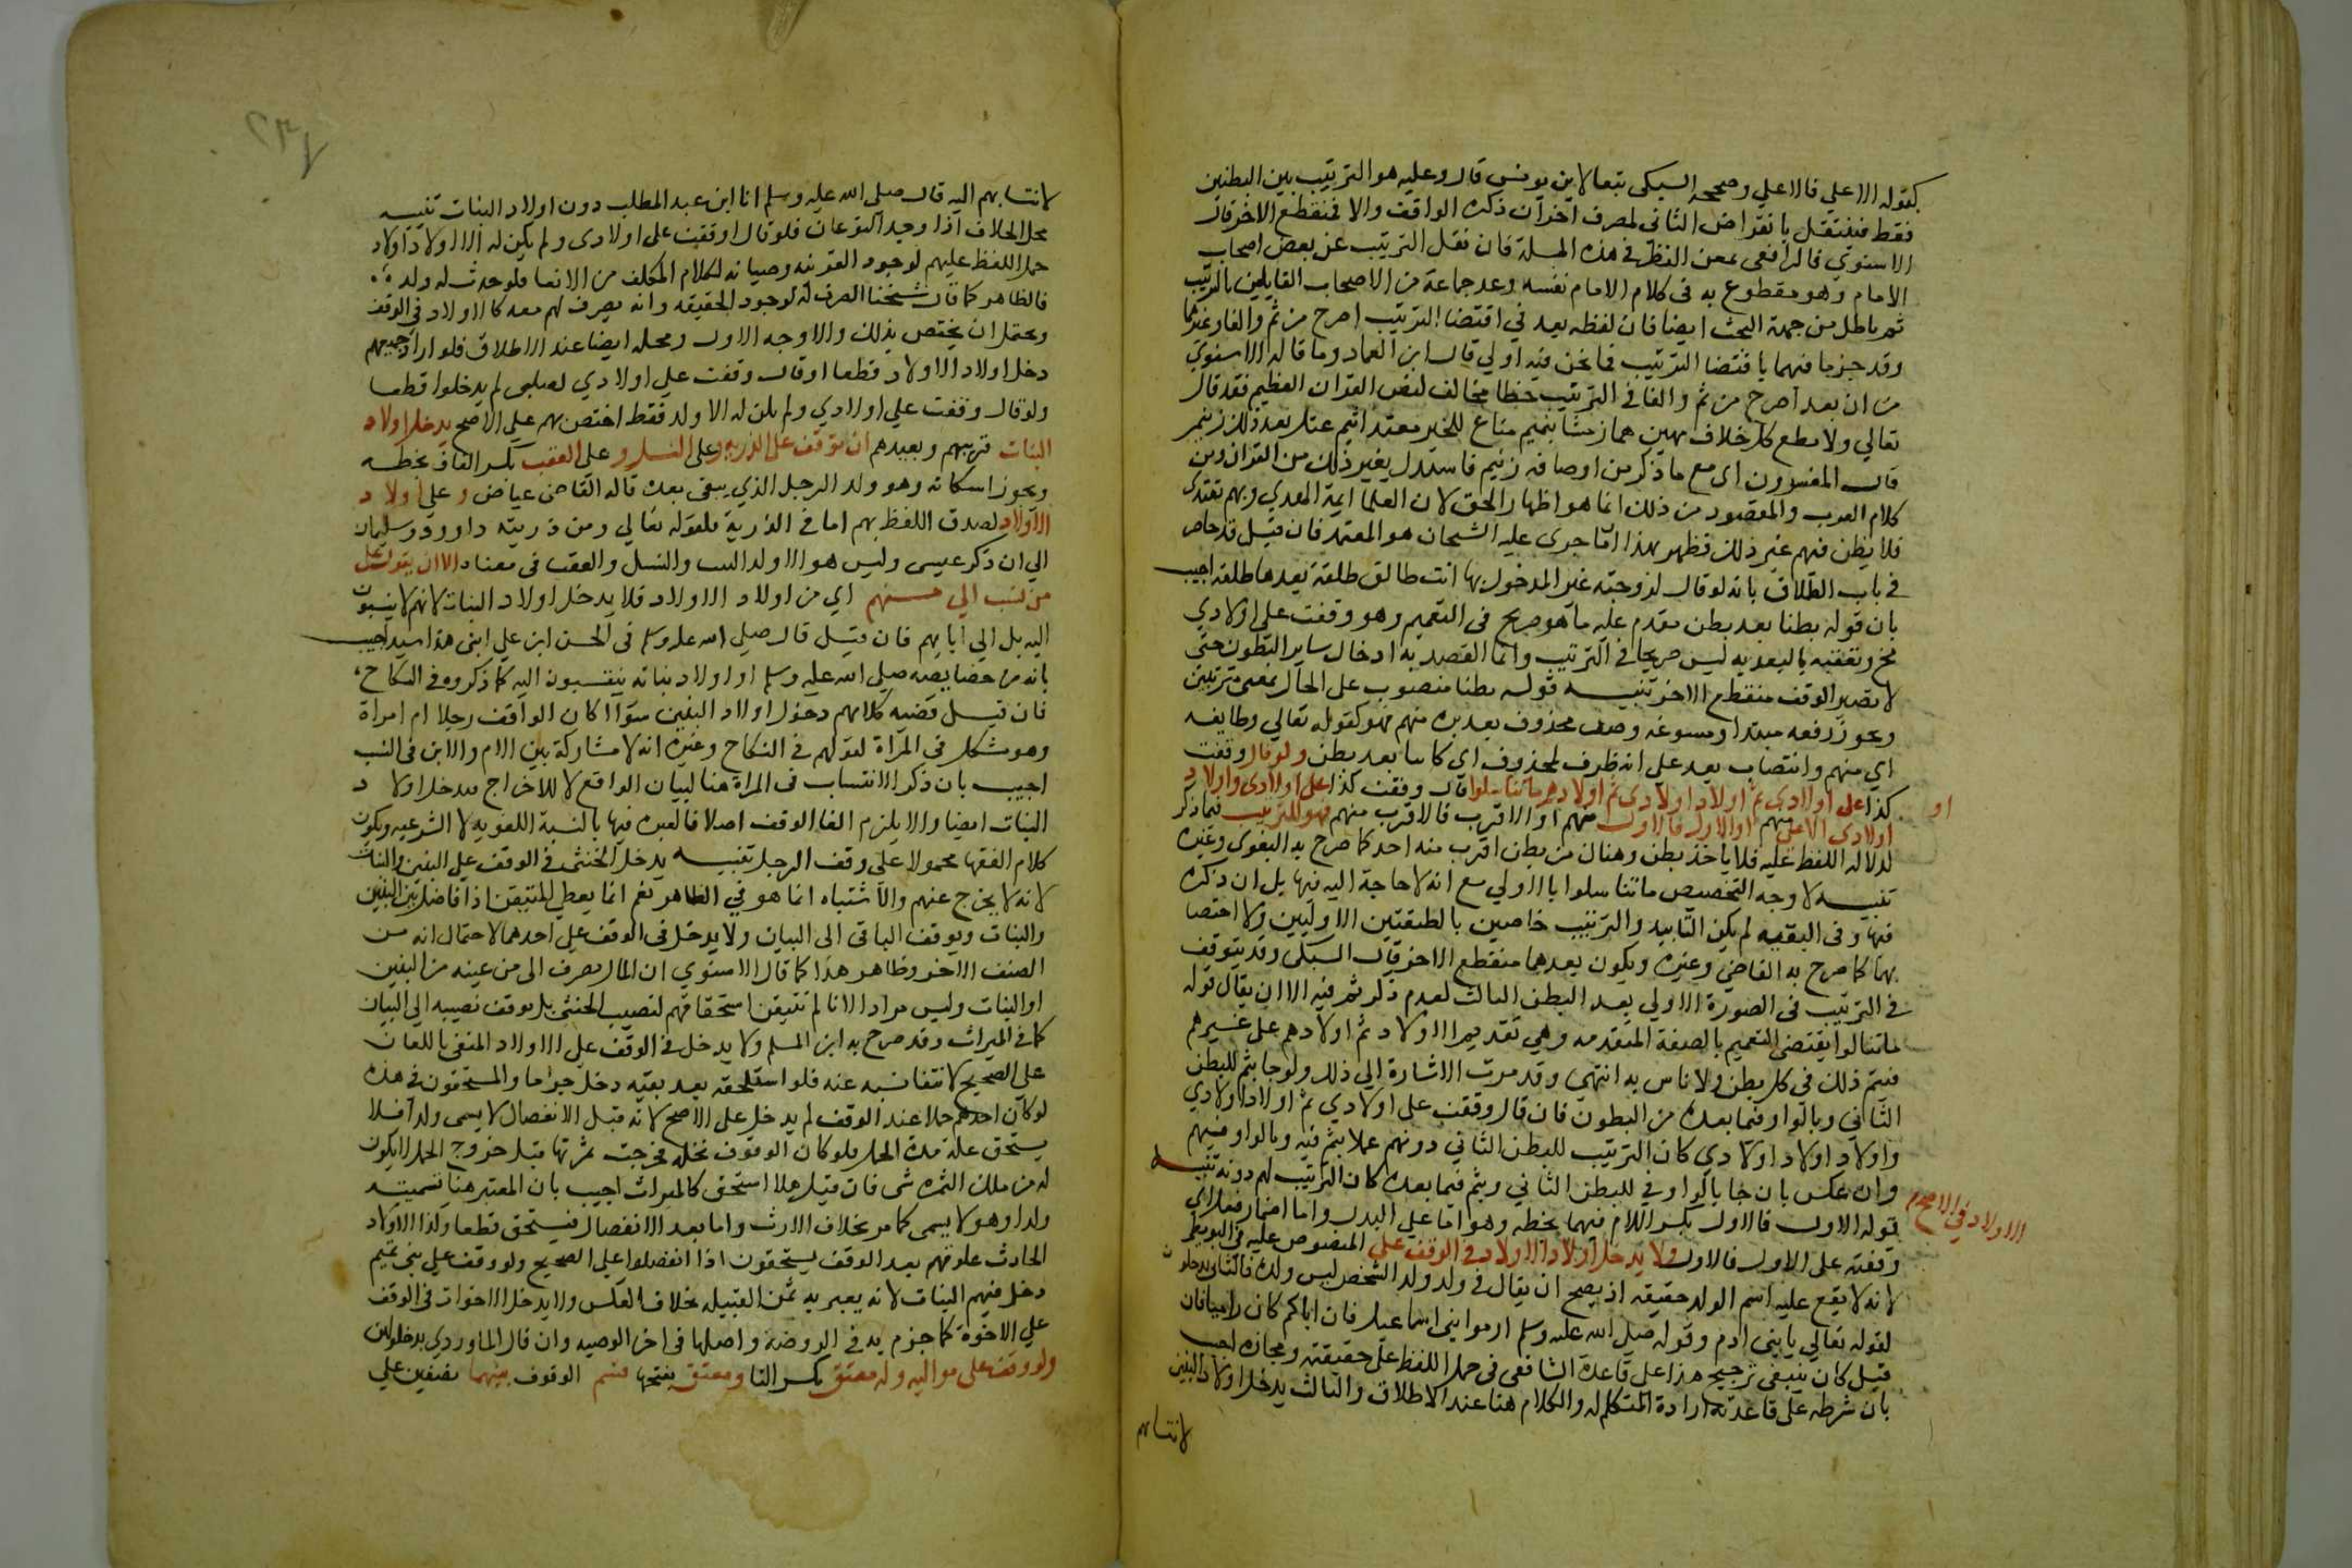 كقوله الاعلي فالاعلي وصححه السبكي تبعا لابن يونس قال وعليه هو الترتيب بين البطنين
فقط فينتقل بانقراض الثاني لمصرف اخر ان ذكره الواقف والا فمنقطع الاخر قال
الاسنوي فالرافعي يمعن النظر في هذه المسلة فان نقل الترتيب عن بعض اصحاب
الامام وهو مقطوع به في كلام الامام نفسه وعد جماعة من الاصحاب القايلين بالترتيب
ثم باطل من جهة البحث ايضا فان لفظه بعد في اقتضا الترتيب اصرح من ثم والفا وغيرهما
وقد جزما فيهما باقتضا الترتيب فما نحن فيه اولي قال ابن العماد وما قاله الاسنوي
من ان بعد اصرح من ثم والفا في الترتيب خطا مخالف لنص القران العظيم فقد قال
تعالي ولا تطع كل حلاف مهين هماز مشا بنميم مناع للخير معتد اثيم عتل بعد ذلك زنيم
قال المفسرون اي مع ما ذكر من اوصافه زنيم فاستدل بغير ذلك من القران ومن
كلام العرب والمقصود من ذلك انما هو اظهار الحق لان العلما ايمة الهدي وبهم نقتدي
فلا يظن فيهم غير ذلك فظهر بهذا ان ما جري عليه الشيخان هو المعتمد فان قيل قد مر
في باب الطلاق بانه لو قال لزوجته غير المدخول بها انت طالق طلقة بعدها طلقة اجيب
بان قوله بطنا بعد بطن تقدم عليه ما هو صريح في التعميم وهو وقفت علي اولادي
الخ وتعقبه بالبعدية ليس صريحا في الترتيب وانما القصد به ادخال ساير البطون حتي
لا يصير الوقف منقطع الاخر تنبيه قوله بطنا منصوب علي الحال بمعني مترتبين
ويجوز رفعه مبتدا ومسوغه وصف محذوف بعد بدء منهم فهو كقوله تعالي وطايفه
اي منهم وانتصاب بعد علي انه ظرف لمحذوف اي كاينا بعد بطن ولو قال وقفت
كذا علي اولادي ثم اولاد اولادي ثم اولادهم ما تناسلوا قال وقفت كذا علي اولادي واولاد
او
اولادي الاعلي منهم او الاول فالاول منهم او الاقرب فالاقرب منهم فهو للترتيب فيما ذكر
لدلالة اللفظ عليه فلا ياخذ بطن وهناك من بطن اقرب منه احد كما صرح به البغوي وغيره
تنبيه لا وجه لتخصيص ما تناسلوا بالاولي مع انه لا حاجة اليه فيها بل ان ذكره
فيها وفي البقيه لم يكن التابيد والترتيب خاصين بالطبقتين الاوليين والا اختصا
بهما كما صرح به القاضي وغيره ويكون بعدهما منقطع الاخر قال السبكي وقد يتوقف
في الترتيب في الصورة الاولي بعد البطن الثالث لعدم ذكر ثم فيه الا ان يقال قوله
ما تناسلوا يقتضي التعميم بالصفة المتقدمه وهي تقديم الاولاد ثم اولادهم علي غيرهم
فيتم ذلك في كل بطن ولا باس به انتهي وقد مرت الاشارة الي ذلك ولو جا بثم للبطن
الثاني وبالواو فيما بعده من البطون كان قال وقفت علي اولادي ثم اولاد اولادي
واولاد اولاد اولادي كان الترتيب للبطن الثاني دونهم عملا بثم فيه وبالواو فيهم
وان عكس بان جا بالواو في للبطن الثاني وبثم فيما بعده كان الترتيب لهم دونه تنبيه
قوله الاول فالاول بكسر اللام فيهما بخطه وهو اما علي البدل واما اضمار فعل اي
وقفته علي الاول فالاول ولا يدخل اولاد الاولاد في الوقف علي المنصوص عليه في البويطي
الاولاد في الاصح
لانه لا يقع عليه اسم الولد حقيقه اذ يصح ان يقال في ولد ولد الشخص ليس ولده فالثاني يدخلون
لقوله تعالي يا بني ادم وقوله صلي الله عليه وسلم ارموا بني اسماعيل فان اباكم كان راميا فان
قيل كان ينبغي ترجيح هذا علي قاعدة الشافعي في حمل اللفظ علي حقيقته ومجازه اجيب
بان شرطه علي قاعدته ارادة المتكلم له والكلام هنا عند الاطلاق والثالث يدخل اولاد البنين
لانتسابهم
لانتسابهم اليه قال صلي الله عليه وسلم انا ابن عبد المطلب دون اولاد البنات تنبيه
محل الخلاف اذا وجد النوعان فلو قال وقفت علي اولادي ولم يكن له الا اولاد اولاد
حمل اللفظ عليهم لوجود القرينه وصيانه لكلام المكلف من الالغا فلو حدث له ولد
فالظاهر كما قال شيخنا الصرف له لوجود الحقيقه وانه يصرف لهم معه كالاولاد في الوقف
ويحتمل ان يختص بذلك والاوجه الاول ومحله ايضا عند الاطلاق فلو اراد جميعهم
دخل اولاد الاولاد قطعا او قال وقفت علي اولادي لصلبي لم يدخلوا قطعا
ولو قال وقفت علي اولادي ولم يكن له الا ولد فقط اختص بهم علي الاصح يدخل اولاد
البنات قريبهم وبعيدهم ان توقف علي الذرية وعلي النسل وعلي العقب بكسر القاف بخطه
ويجوز اسكانه وهو ولد الرجل الذي يبقي بعده قاله القاضي عياض وعلي اولاد
الاولاد لصدق اللفظ بهم اما في الذرية فلقوله تعالي ومن ذريته داوود وسليمان
الي ان ذكر عيسي وليس هو الا ولد البنت والنسل والعقب في معناه الا ان يقول علي
من ينسب الي منهم اي من اولاد الاولاد فلا يدخل اولاد البنات لانهم لا ينسبون
اليه بل الي ابايهم فان قيل قال صلي الله عليه وسلم في الحسن ابن علي ابني هذا سيد اجيب
بانه من خصايصه صلي الله عليه وسلم ان اولاد بناته ينتسبون اليه كما ذكروه في النكاح
فان قيل قضيه كلامهم دخول اولاد البنين سوا كان الواقف رجلا ام امراة
وهو مشكل في المرآة لقولهم في النكاح وغيره انه لا مشاركة بين الام والابن في النسب
اجيب بان ذكر الانتساب في المراة هنا لبيان الواقع لا للاخراج فيدخل اولاد
البنات ايضا والا يلزم الغا الوقف اصلا فالعبره فيها بالنسبة اللغويه لا الشرعيه ويكون
كلام الفقها محمولا علي وقف الرجل تنبيه يدخل الخنثي في الوقف علي البنين والبنات
لانه لا يخرج عنهم والاشتباه انما هو في الظاهر نعم انما يعطي المتيقن اذا فاضل بين البنين
والبنات ويوقف الباقي الي البيان ولا يدخل في الوقف علي احدهما لاحتمال انه من
الصنف الاخر وظاهر هذا كما قال الاسنوي ان المال يصرف الي من عينه من البنين
او البنات وليس مرادا لانا لم نتيقن استحقاقهم لنصيب الخنثي بل يوقف نصيبه الي البيان
كما في الميراث وقد صرح به ابن المسلم ولا يدخل في الوقف علي الاولاد المنفي باللعان
علي الصحيح لانتفا نسبه عنه فلو استلحقه بعد نفيه دخل جزما والمستحقون في هذه
لو كان احدهم حملا عند الوقف لم يدخل علي الاصح لانه قبل الانفصال لا يسمي ولدا فلا
يستحق غلة مدة الحمل فلو كان الموقوف نخلة فخرجت ثمرتها قبل خروج الحمل لا يكون
له من ملك الثمره شي فان قيل هلا استحق كالميراث اجيب بان المعتبر هنا تسميته
ولدا وهو لا يسمي كما مر بخلاف الارث واما بعد الانفصال فيستحق قطعا وكذا الاولاد
الحادث علوقهم بعد الوقف يستحقون اذا انفصلوا علي الصحيح ولو وقف علي بني تميم
دخل فيهم البنات لانه يعبر به عن القبيله بخلاف العكس ولا يدخل الاخوات في الوقف
علي الاخوة كما جزم به في الروضة واصلها في اخر الوصيه وان قال الماوردي بدخولهن
ولو وقف علي مواليه وله معتق بكسر التا ومعتق بفتحها قسم الوقوف بينهما نصفين علي